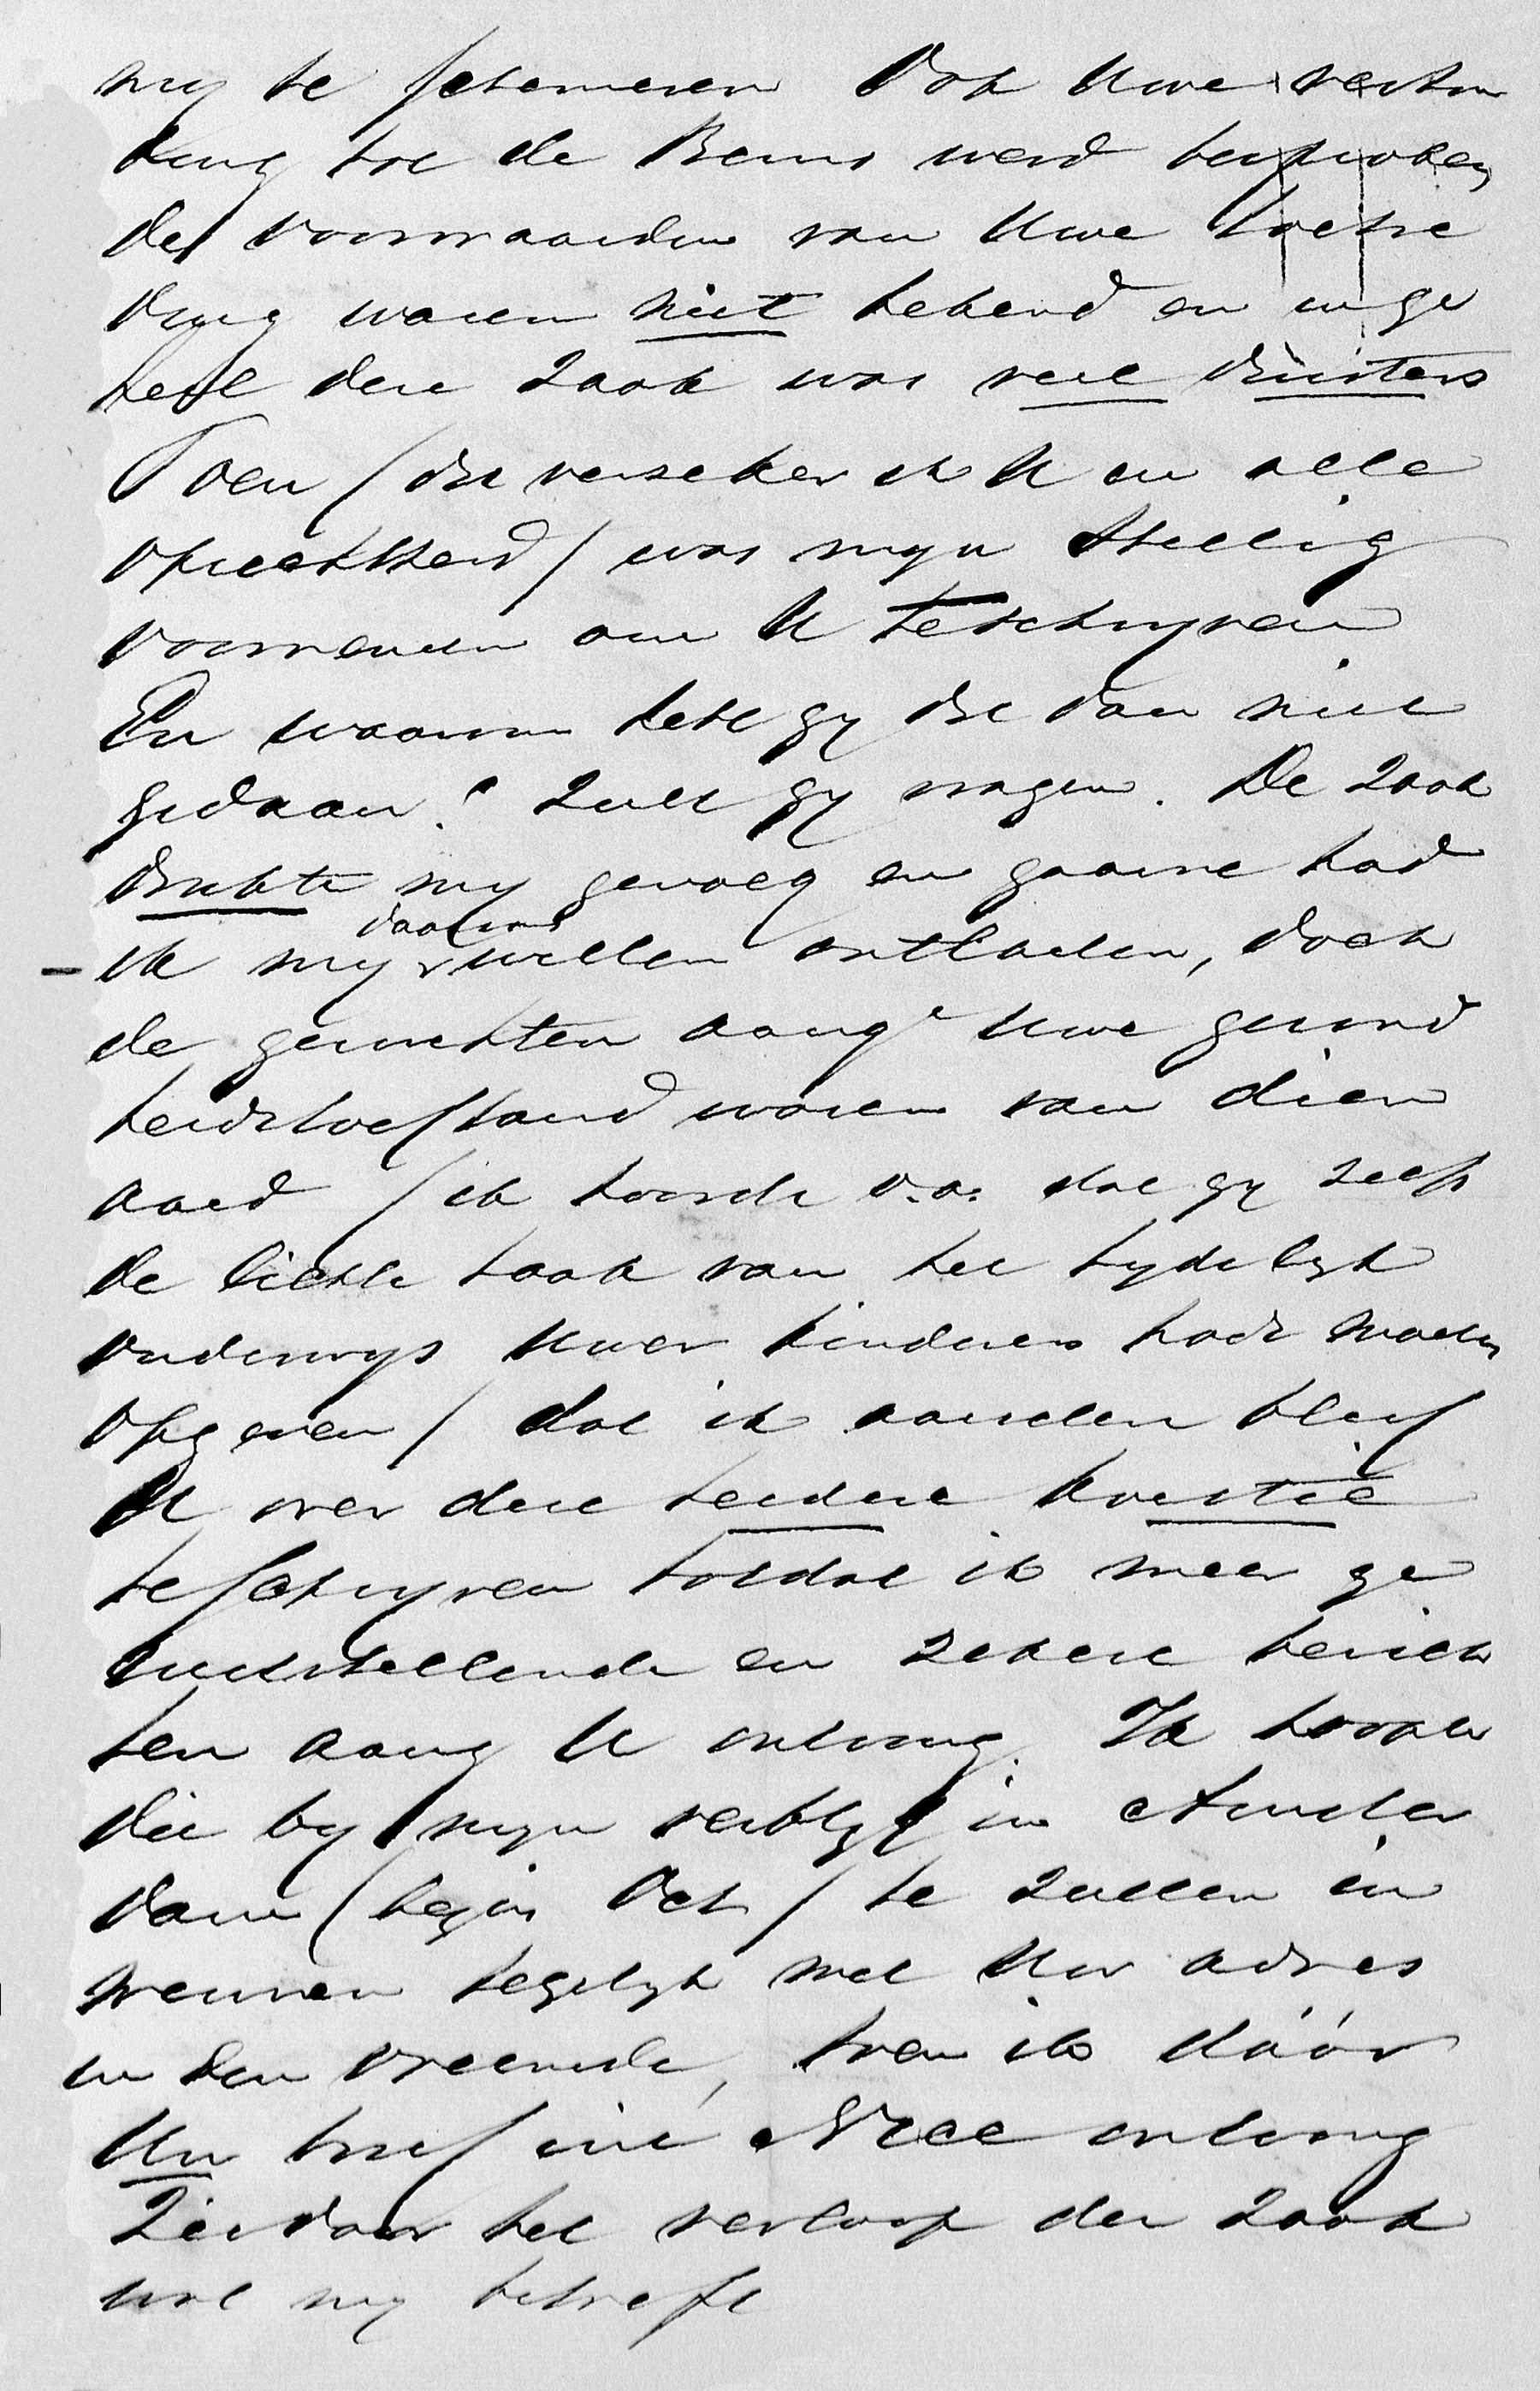 my te schemeren Ook Uwe verhou
ding tot de Beurs werd besproken
de voorwaarden van Uwe toetre
ding waren niet bekend en in ge
heel deze zaak was veel duisters
Toen / dit verzeker ik U in alle
oprechtheid / was myn stellig
voornemen om U te schryven
En waarom hebt gy dit dan niet
gedaan? Zult gy vragen. De zaak
drukte my genoeg en gaarne had
ik my daarvan willen ontladen, doch
de geruchten aang. Uwe gezond
heidstoestand waren van dien
aard / ik hoorde o.a. dat gy zelfs
de lichte taak van het tydelyk
onderwys Uwer kinderen hadt moeten
opgeven / dat ik aarzelen bleef
U over deze teedere kwestie
te schryven totdat ik meer ge
ruststellende en zekere berich
ten aang U ontving. Ik hoopte
die by myn verblyf in Amster
dam / begin Oct / te zullen in
winnen tegelyk met Uw adres
in den vreemde, toen ik dáár
Uw brief uit Nice ontving
Ziedaar het verloop der zaak
wat my betreft